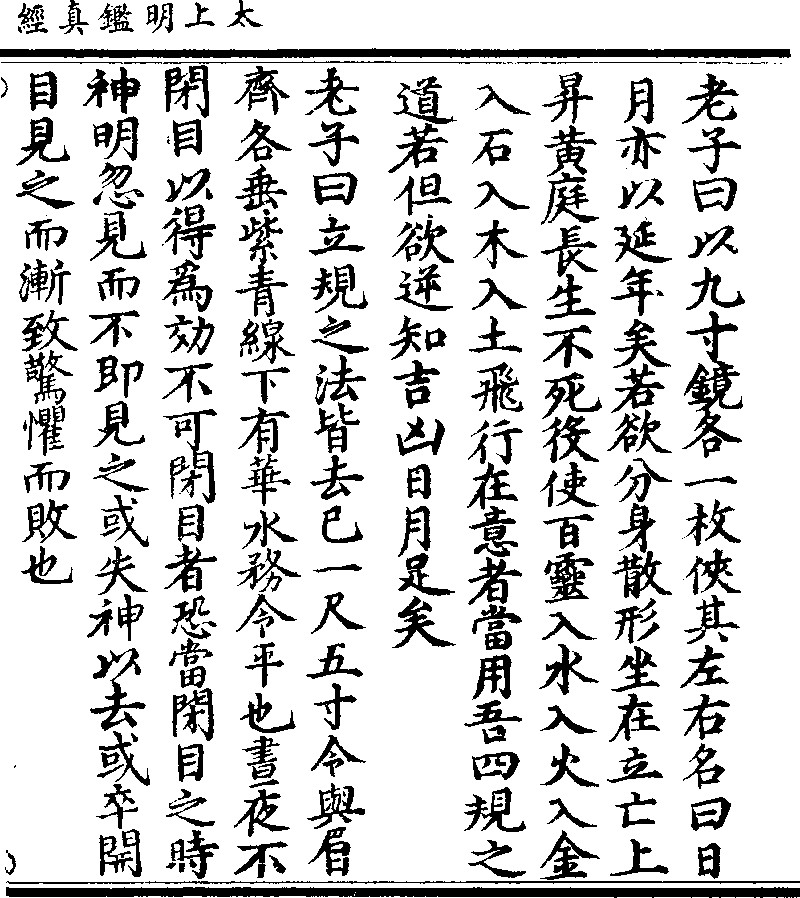 太上明鑑真經
老子曰以九寸鏡各一枚俠其左右名曰日
月亦以延年矣若欲分身散形坐在立亡上
昇黃庭長生不死役使百靈入水入火入金
入石入木入土飛行在意者當用吾四規之
道若但欲逆知吉凶日月足矣
老子曰立規之法皆去已一尺五寸令與眉
齊各垂紫青線下有華水務令平也晝夜不
閉目以得為効不可閉目者恐當閉目之時
神明忽見而不即見之或失神以去或卒開
目見之而漸致驚懼而敗也